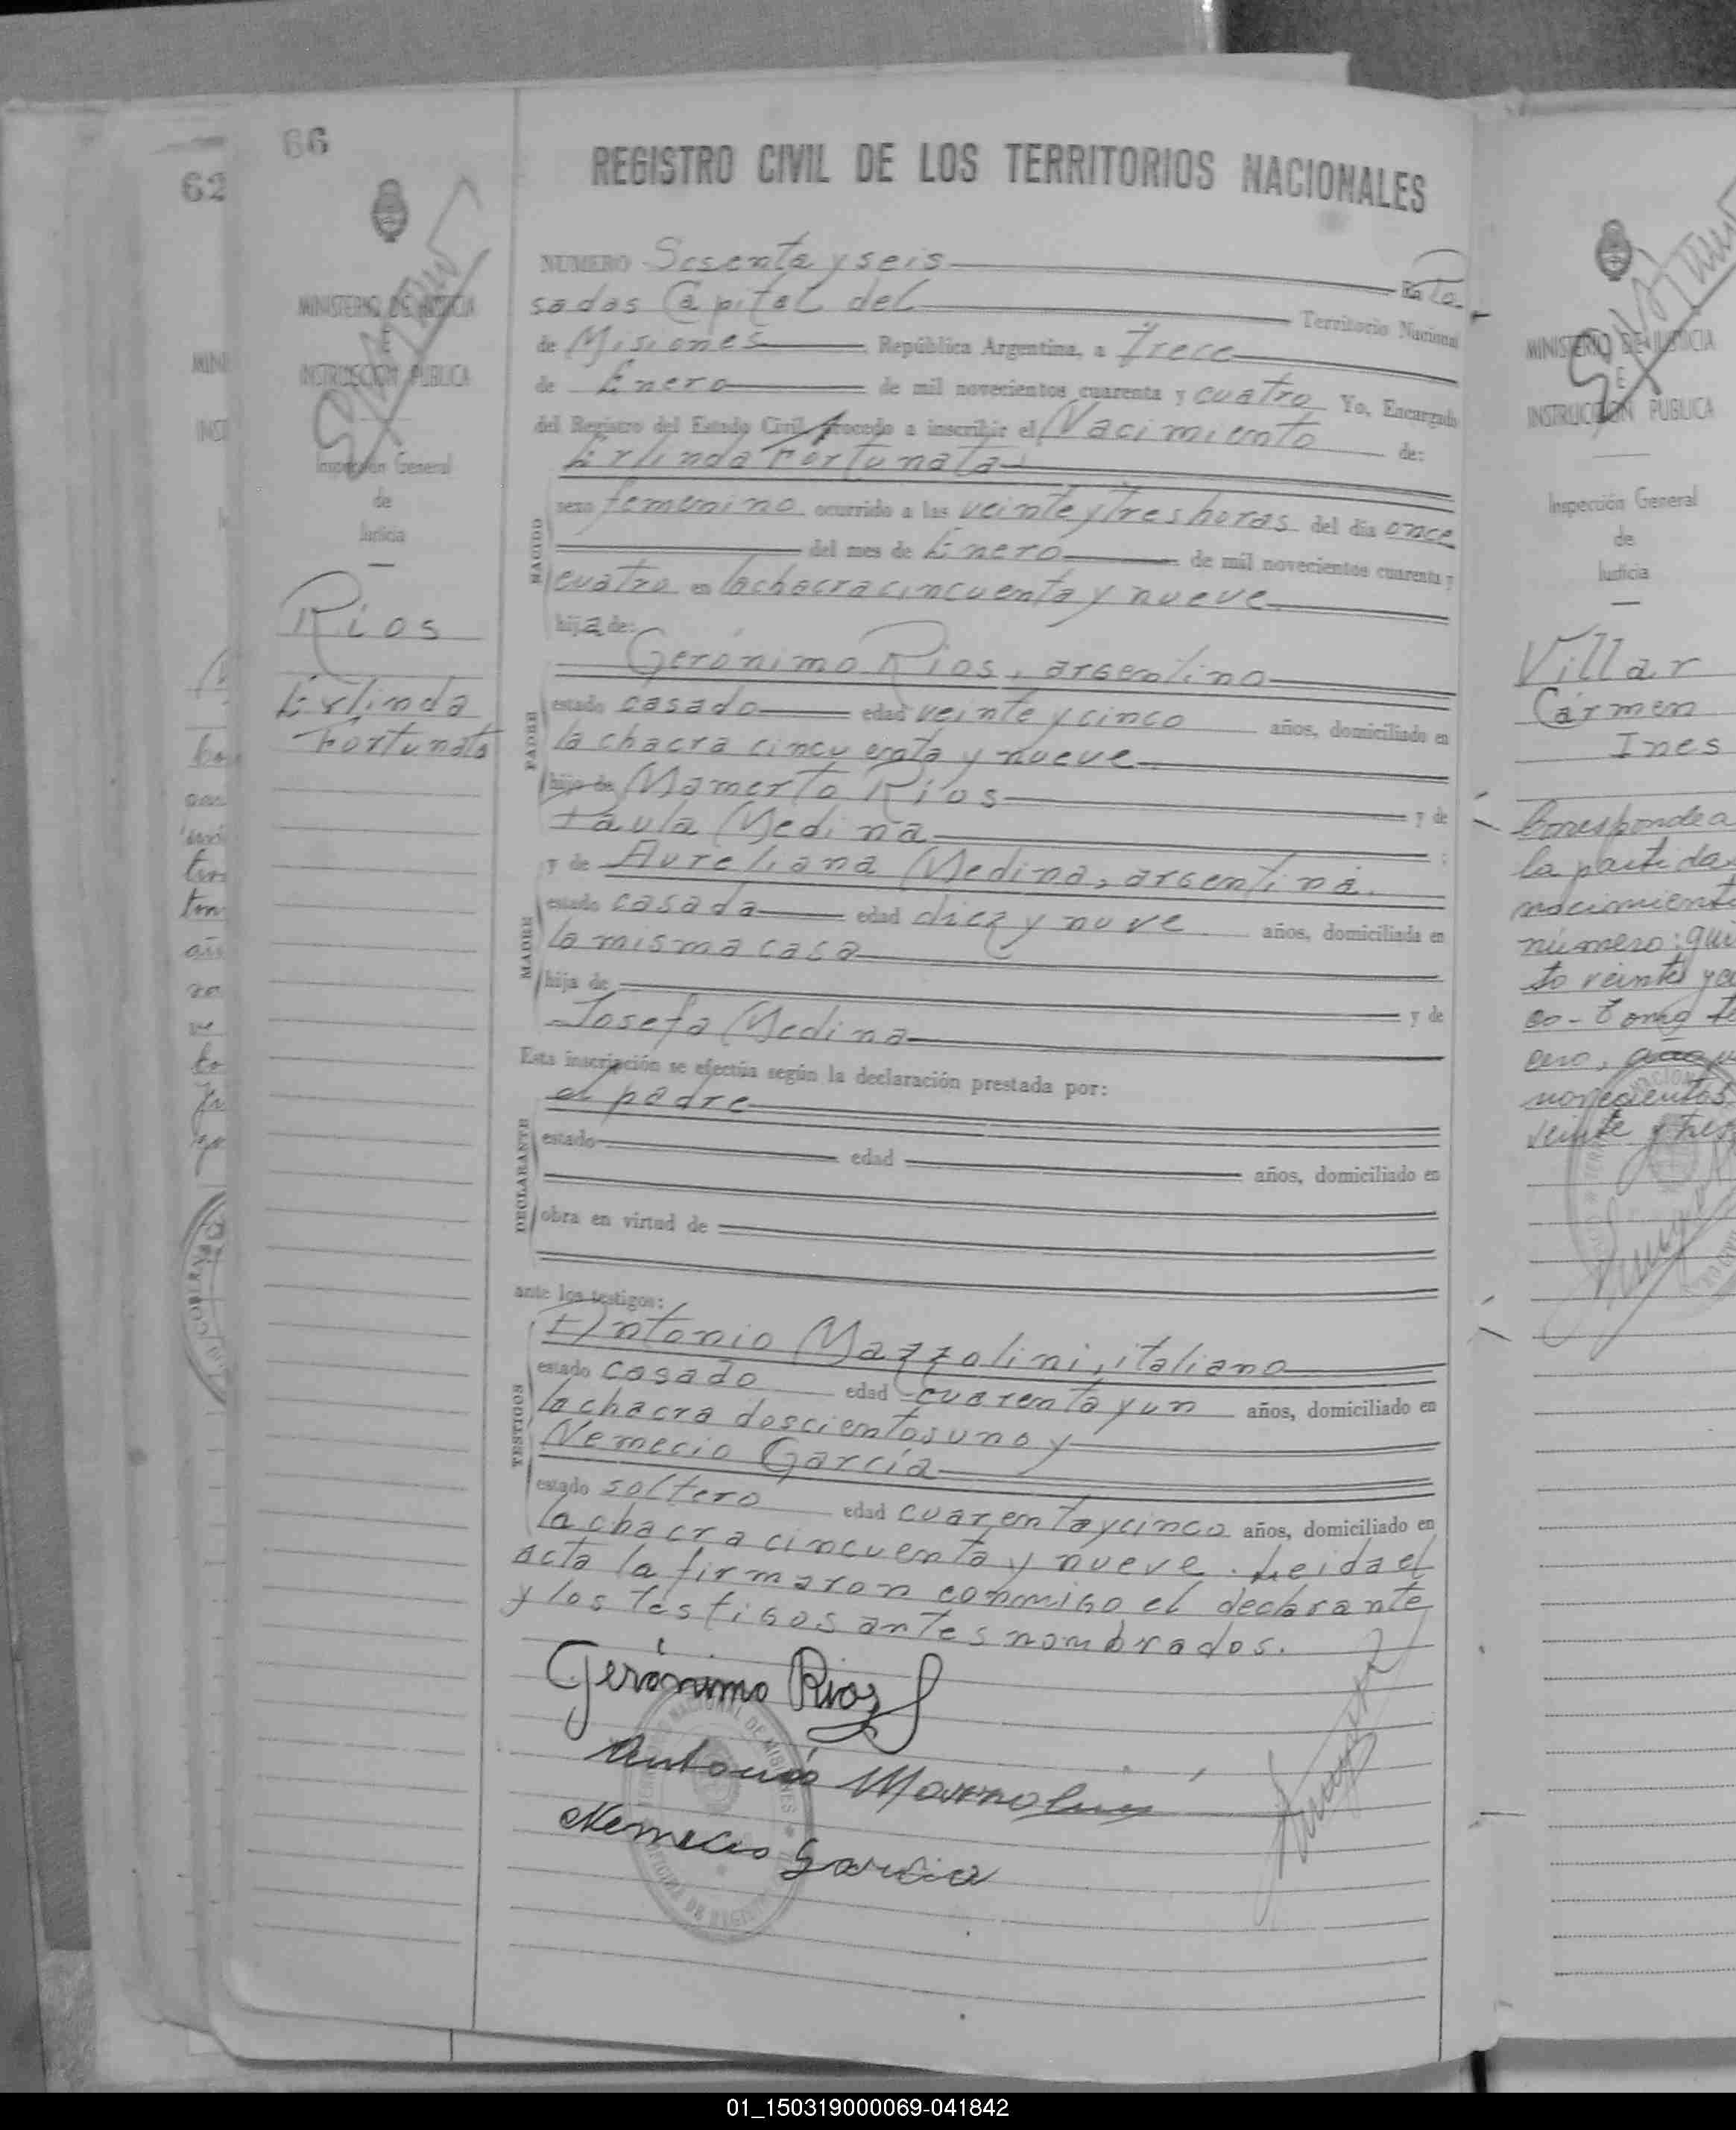 66
62
REGISTRO CIVIL DE LOS TERRITORIOS NACIONALES
MINISTERIO DE JUSTICIA
E
INSTRUCCION PUBLICA
Inspección General
de
Justicia
Rios
Erlinda
Fortunata
NUMERO Sesenta y seis En Po
sadas Capital del Territorio Nacional
de Misiones República Argentina, a Trece
de Enero de mil novecientos cuarenta y cuatro Yo, Encargado
del Registro del Estado Civil, procedo a inscribir el Nacimiento de:
Erlinda Fortunata
NACIDO
sexo femenino ocurrido a las veinte y tres horas del día once
del mes de Enero de mil novecientos cuarenta y
cuatro en la chacra cincuenta y nueve
hija de:
PADRE
Gerónimo Rios, argentino
estado casado edad veinte y cinco años, domiciliado en
la chacra cincuenta y nueve
hijo de Mamerto Rios y de
Paula Medina ;
MADRE
y de Aureliana Medina, argentina.
estado casada edad diez y nuve años, domiciliada en
la misma casa
hija de y de
Josefa Medina
Esta inscripción se efectúa según la declaración prestada por:
el padre
DECLARANTE
estado edad años, domiciliado en
obra en virtud de
ante los testigos:
TESTIGOS
Antonio Mazzolini, italiano
estado casado edad cuarenta y un años, domiciliado en
la chacra doscientos uno y
Nemecio García
estado soltero edad cuarenta y cinco años, domiciliado en
la chacra cincuenta y nueve. Leida el
acta la firmaron conmigo el declarante
y los testigos antes nombrados.
Gerónimo Rios
Antonio Mazzolini
Nemecio Garcia
NACIONAL DE MISIONES
MINISTERIO DE JUSTICIA
E
INSTRUCCION PUBLICA
Inspección General
de
Justicia
Villar
Cármen
Ines
Corresponde a
la partida
nacimiento
número:
to veinte y
co - tomo
cero,
novecientos
veinte y tres
01_150319000069-041842